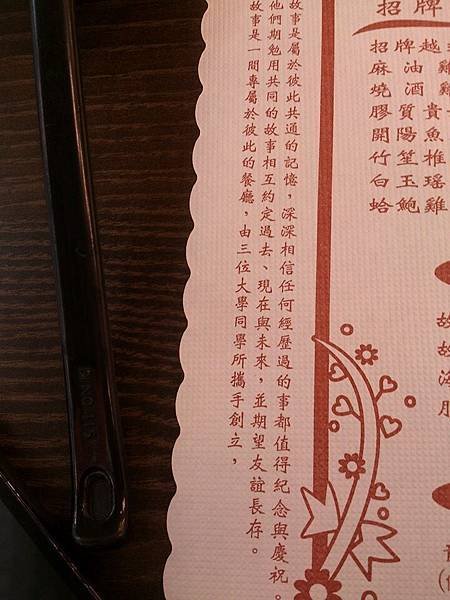 招牌
招牌越
麻油雞
燒酒雞
膠質貴
開陽魚
竹笙椎
白玉瑤
蛤鮑雞
故事是屬於彼此共通的記憶，深深相信任何經歷過的事都值得紀念與慶祝。
他們期勉用共同的故事相互約定過去、現在與未來，並期望友誼長存。
故事是一間專屬於彼此的餐廳，由三位大學同學所攜手創立，
故
故
海